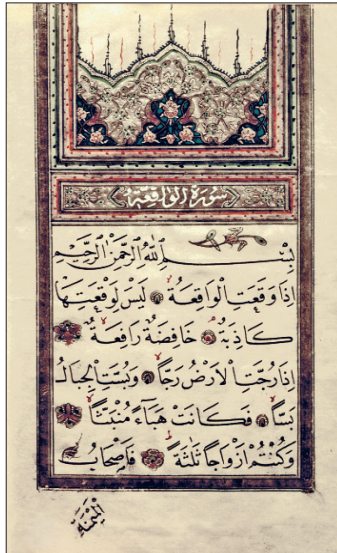 سُورَةُ الْوَاقِعَةِ
بِسْمِ اللّٰهِ الرَّحْمٰنِ الرَّحِيمِ
اِذَا وَقَعَتِ الْوَاقِعَةُ لَيْسَ لِوَقْعَتِهَا
كَاذِبَةٌ خَافِضَةٌ رَافِعَةٌ
اِذَا رُجَّتِ الْاَرْضُ رَجًّا وَبُسَّتِ الْجِبَالُ
بَسًّا فَكَانَتْ هَبَٓاءً مُنْبَثًّا
وَكُنْتُمْ اَزْوَاجًا ثَلٰثَةً فَاَصْحَابُ
الْمَيْمَنَةِ